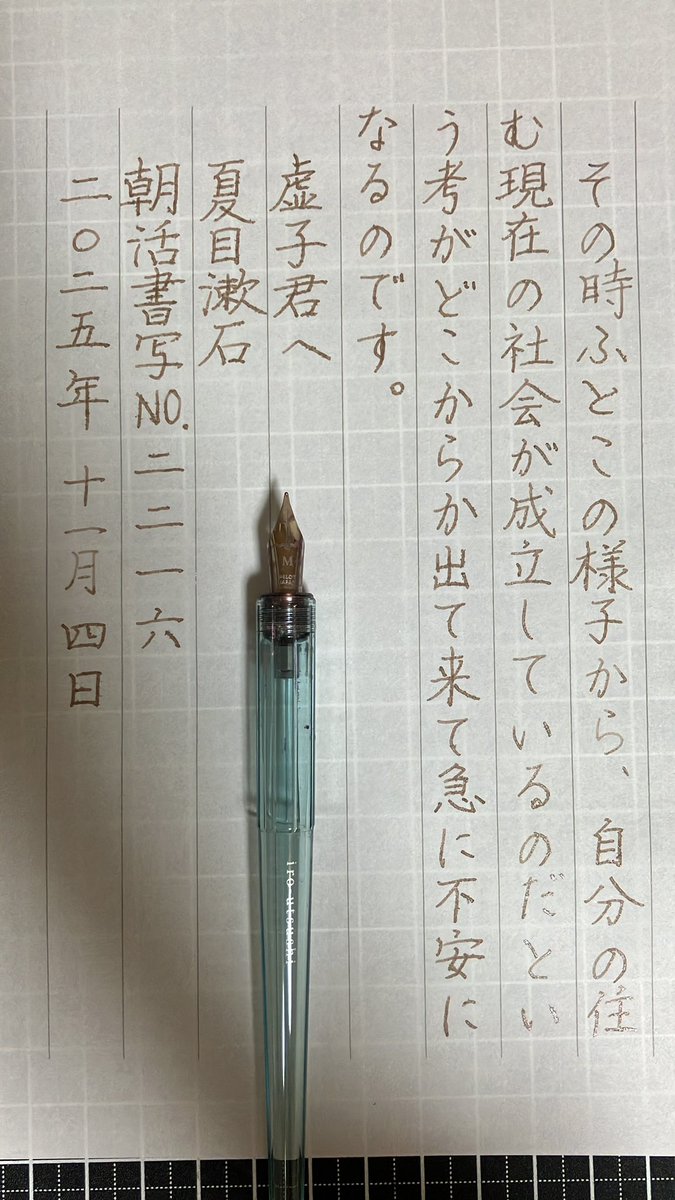 その時ふとこの様子から、自分の住
む現在の社会が成立しているのだとい
う考がどこからか出て来て急に不安に
なるのです。
虚子君へ
夏目漱石
朝活書写NO.二二一六
二〇二五年 十一月四日
M
iro-utsushi